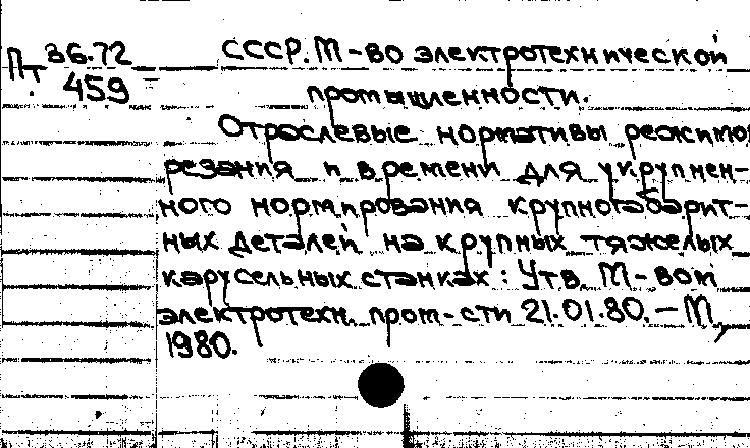 Пт 36.72
459
СССР. М-во электротехнической
промышленности.
Отраслевые нормативы режимов
резания и времени для укрупнен-
ного нормирования крупногабарит-
ных деталей на крупных тяжелых
карусельных станках: Утв. М-вом
электротехн. пром-сти 21.01.80. – М.,
1980.